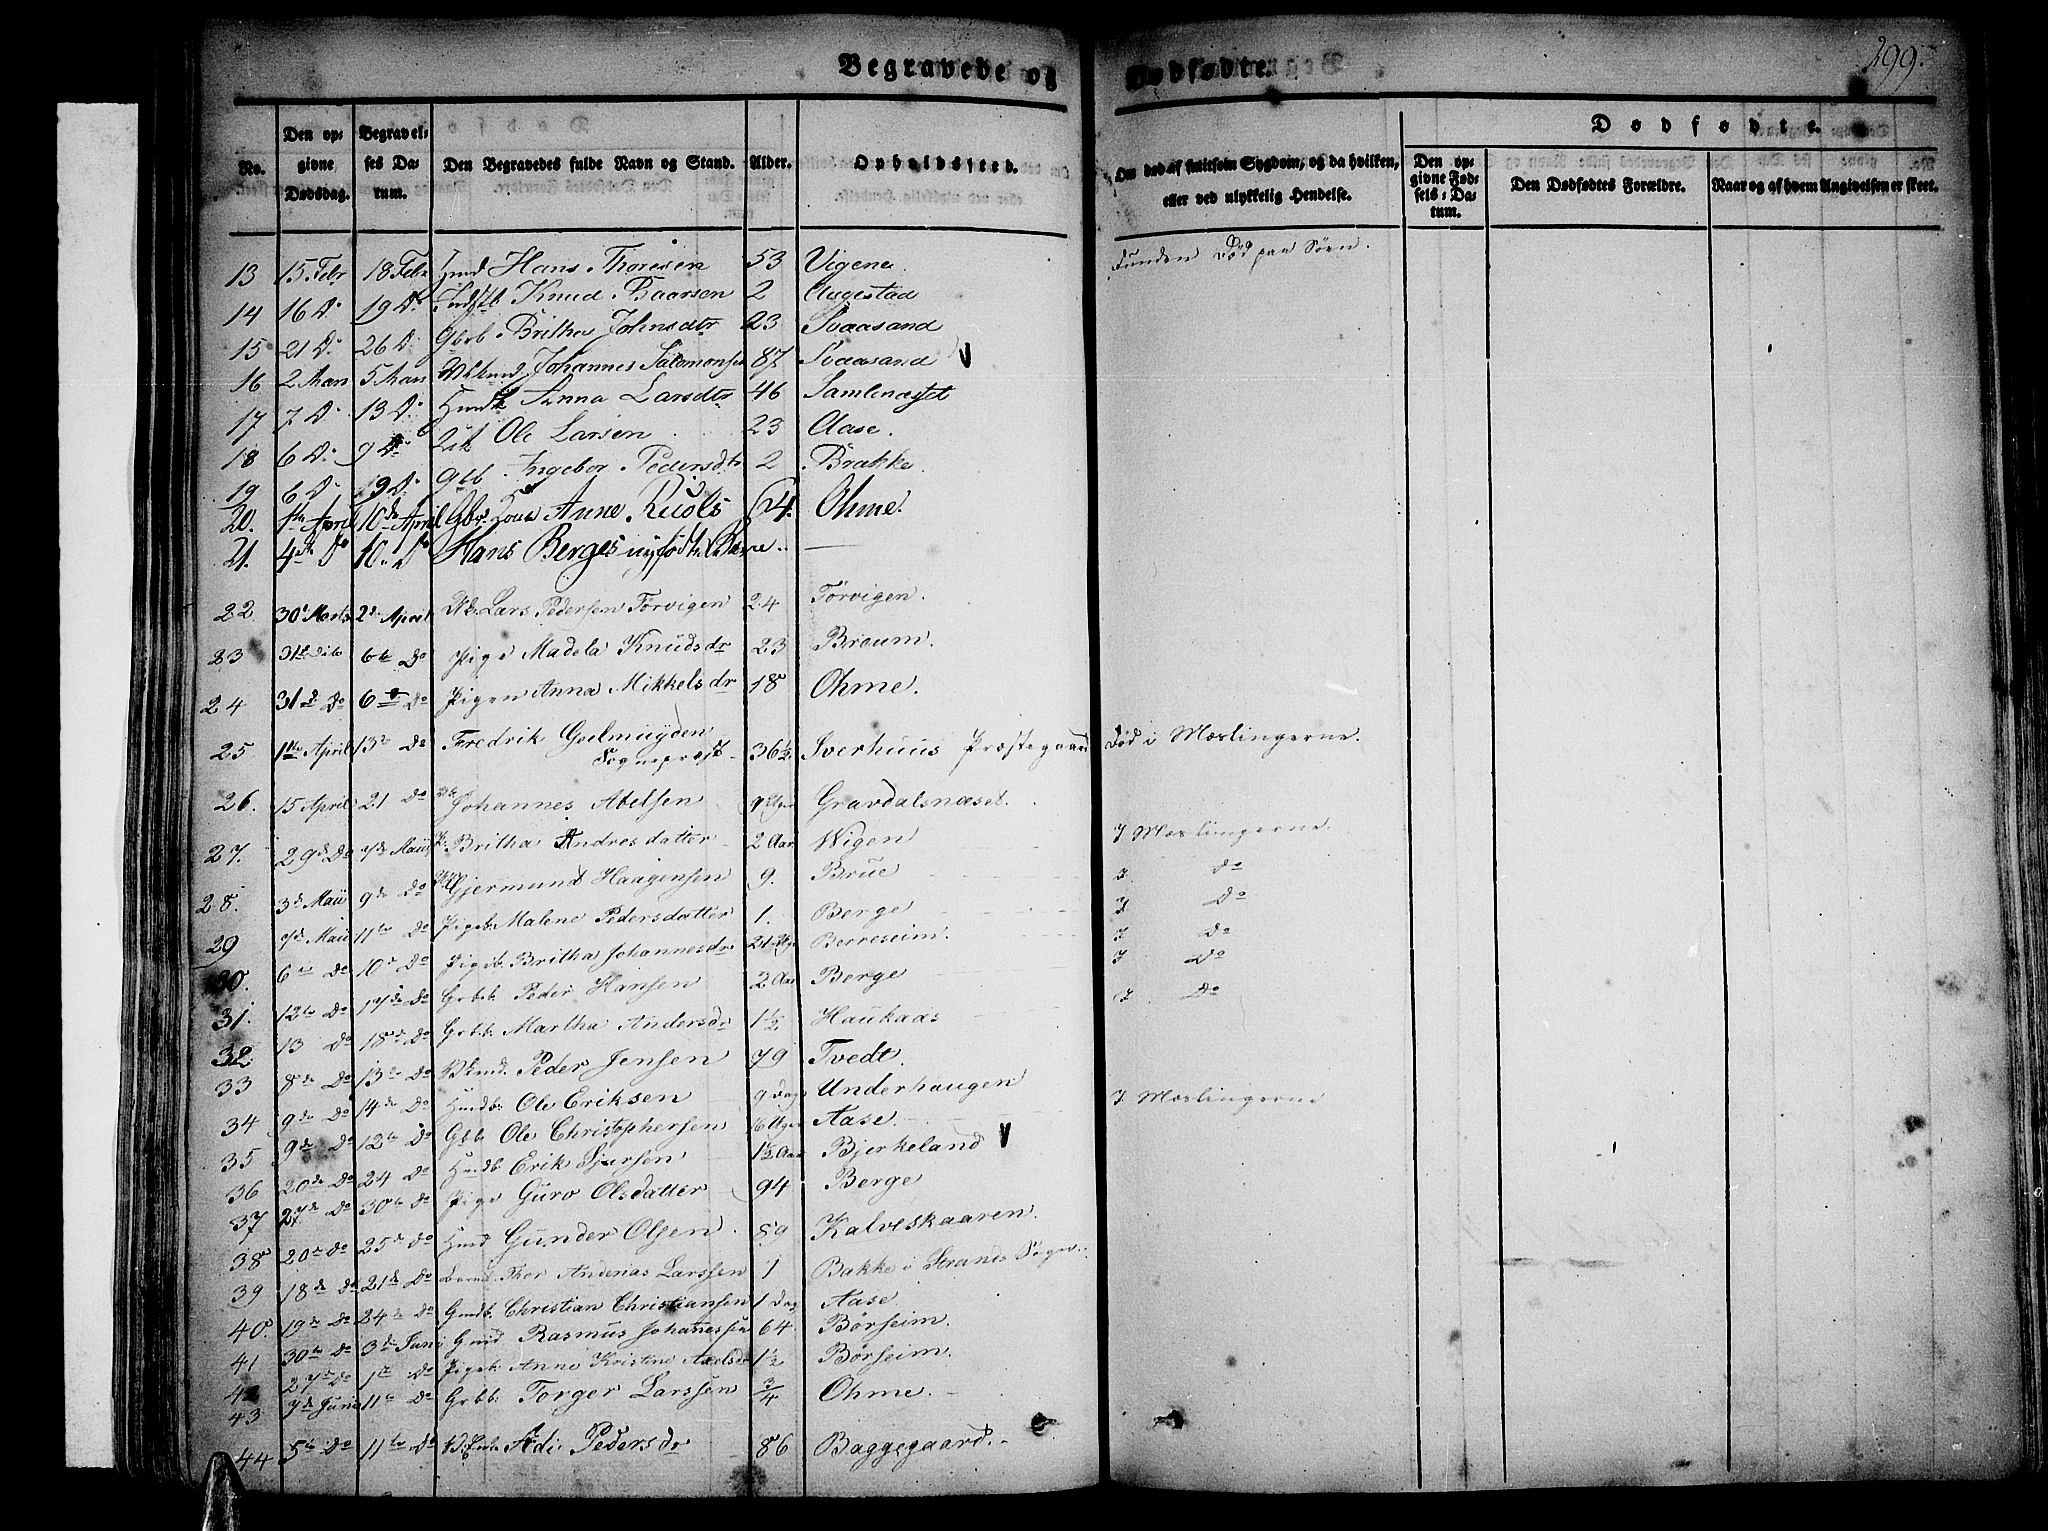 Begravede og Dødfødte.
299.
No. Den opgivne Dødsdag. Begravelses Datum. Den Begravedes fulde Navn og Stand. Alder. Opholdssted. Om død af smitsom Sygdom, og da hvilken, eller ved ulykkelig Hendelse. Dødfødte. Den opgivne Fødsels-Datum. Den Dødfødtes Forældre. Naar og af hvem Angivelsen er skeet.
13 15 Febr 18 Febr Hans Thoresen 53 Vigene. Funden Død paa Söen.
14 16 Do 19 Do Knud Baarsen 2 Augestad
15 21 Do 26 Do Gbrb Britha Johnsdtr 23 Svaasand
16 2 Mars 5 Mars Johannes Salomonsen 87 Svaasand
17 7 Do 13 Do Anna Larsdtr 46 Samlenæsset
18 6 Do 9 Do Ole Larsen 23 Aase.
19 6 Do 19 Do Gbb Ingebor Pedersdtr 2 Brakke.
20. April 10de April Anne 64. Ohme.
21. 4de Do 10. Do Hans Berges nyfödte Barn —
22. 30 Marts 2d April Lars Pedersen Torvigen 24 Torvigen.
23 31te Dito 6te Do Pige Madela Knudsdr 23 Broum.
24 31d Do 6te Do Pigen Anna Mikkelsdr 18 Ohme.
25 1ste April 13de Do Fredrik Geelmuyden Sognepræst 36½ Præstegaard Död i Mæslingerne.
26. 15 April 21 Do Johannes Abelsen 9 Uger Gravdalsnæset.
27. 29de Do 7de Maii Britha Andresdatter 2 Aar Wigen I Mæslingerne.
28. 3de Maii 9de Do Gjermund Haagensen 9. Brüe I Do
29 7de Maii 11te Do Pigeb. Malene Pedersdatter 1. Berge I Do
30. 6te Do 10de Do Pigeb. Britha Johannesdr 21 Uger Berreseim. I Do
31. 12te Do 17de Do Grbb. Peder Hansen 2 Aar Berge I Do
32. 13 Do 18de Do Grbb. Martha Andersdr 1½ Haukaas I Do
33 8de Do 13de Do Peder Jensen 79 Tvedt.
34 9de Do 14de Do Husmb. Ole Eriksen 9 Dage Underhaugen I Mæslingerne
35 9de Do 12te Do Gbb. Ole Christophersen 6 Uger Aase.
36 20de Do 24 Do Husmb. Erik Sjursen 1½ Aar Bjerkeland
37 27de Do 30te Do Pige Guro Olsdatter 94 Berge
38 20de Do 25de Do Husmd Gunder Olsen. 89 Kalveskaaren.
39 18de Do 21de Do Thor Andreas Larssen 1 Bakke i Strands Sogn.
40. 19de Do 24de Do Gmdb. Christian Christiansen 1 Dag Aase
41 30te Do 3de Juni Gmd Rasmus Johannessen 64 Börseim.
42 27de Do 1ste Do Pigeb. Anne Kristine 1½ Börseim.
43 7de Juni 11te Do Grbb. Torger Larssen ¾ Ohme.
44 5te Do 11te Do Adi Pedersdr 86 Baggegaard.